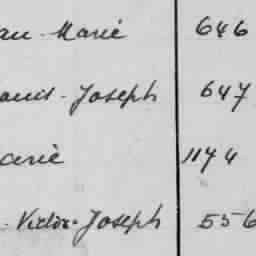 an-Marie 646
Joseph 647
arie 1174
Victor-Joseph 556